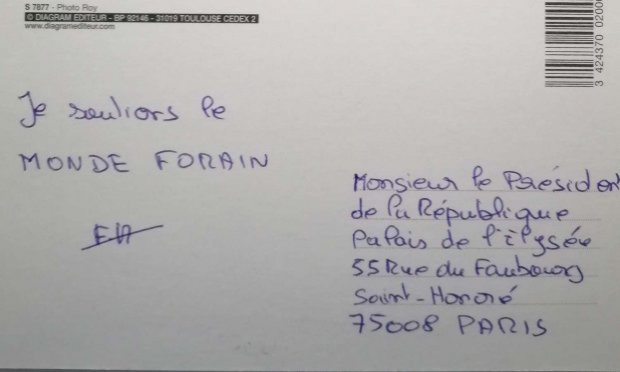 S 7877 - Photo Roy
© DIAGRAM EDITEUR - BP 92146 - 31019 TOULOUSE CEDEX 2
www.diagramediteur.com
3 424370 02000
Je souliors le
MONDE FORAIN
FA
Monsieur le Présiden
de la République
Palais de l'Elysée
55 Rue du Faubourg
Saint-Honoré
75008 PARIS